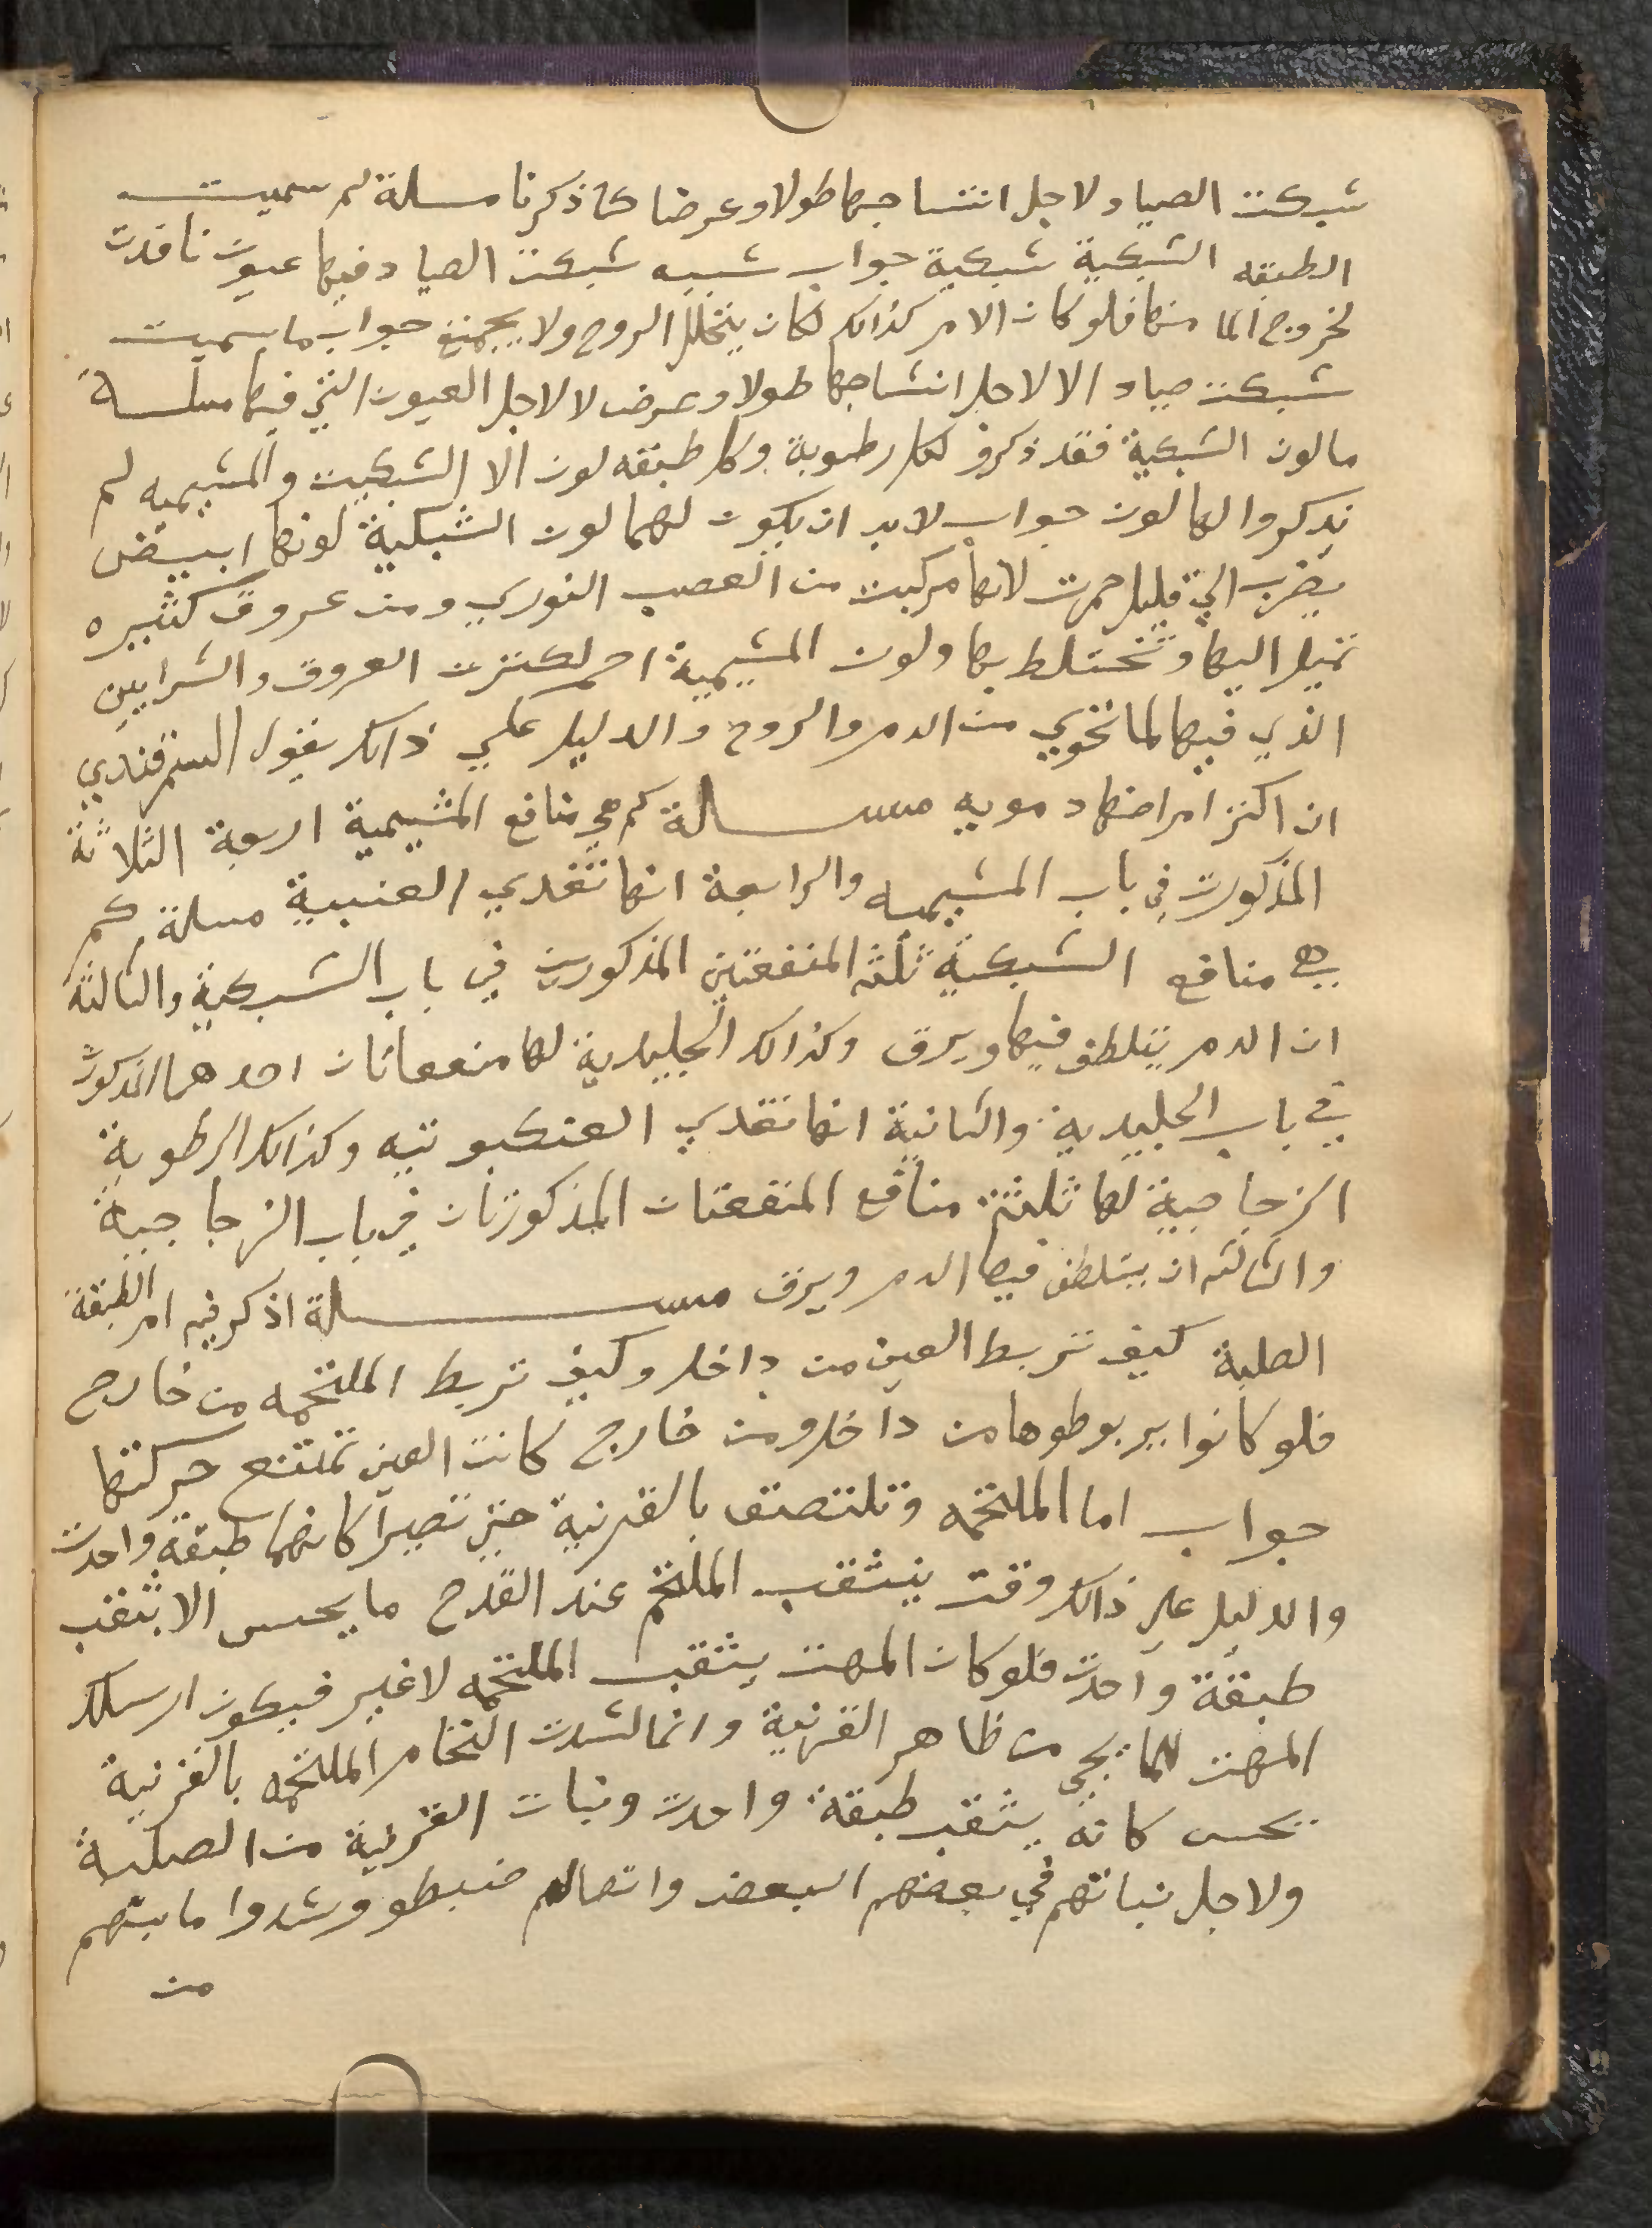 شبكت الصياد ولاجل انتساجها طولا وعرضا كما ذكرنا مسلة لم سميت
الطبقه الشبكية شبكية جواب شبيه شبكت الصياد فيها عيون نافدت
لخروج الما منها فلو كان الامر كذالك لكان يتحلل الروح ولا يجمتع جواب ما سميت
شبكت صياد الا لاجل انتساجها طولا وعرض لا لاجل العيون التي فيها مسلة
مالون الشبكية فقد ذكرو لكل رطوبة وكل طبقه لون الا الشبكيت والمشيميه لم
يدكروا لها لون جواب لابد ان يكون لهما لون الشبكية لونها ابيض
يضرب الي قليل حمرت لانها مركبت من العصب النوري ومن عروق كثيره
تميل اليها وتختلط بها ولون المشيمية احمر لكترت العروق والشرايين
الذي فيها لما تحوي من الدم والروح والدليل علي ذالك يقول السمرقندي
ان اكتر امراضها دمويه مسلة كم هي منافع المشيمية اربعة الثلاثة
المذكورت في باب المشيميه والرابعة انها تغدي العنبية مسلة كم
هي منافع الشبكية ثلثه المنفعتين المذكورين في باب الشبكية والثالثة
ان الدم يتلطف فيها ويرق وكذالك الجليدية لها منفعاتان احدهما المذكورت
في باب الجليدية والثانية انها تغدي العنكبوتيه وكذالك الرطوبة
الزجاجية لها ثلثة منافع المنفعتان المذكورتان في باب الزجاجية
والثالثه ان يتلطف فيها الدم ويرق مسلة اذكر فيه امر الطبقة
الصلبة كيف تربط العين من داخل وكيف تربط الملتحمه من خارج
فلو كانوا يربوطوها من داخل ومن خارج كانت العين تمتنع حركتها
جواب اما الملتحمه وتلتصق بالقرنية حتي تصير كانهما طبقة واحدت
والدليل علي ذالك وقت ينثقب الملتحم عند القدح ما يحس الا بثقب
طبقة واحدت فلو كان المهت يثقب الملتحمه لا غير فيكون ارسلك
المهت لما يجي من ظاهر القرنية وانما لشدت التحام الملتحمه بالقرنية
يحس كانه يثقب طبقة واحدت ونبات القرنية من الصلبة
ولاجل نباتهم في بعضهم البعض واتصالهم ضبطو وشدوا ما بينهم
من